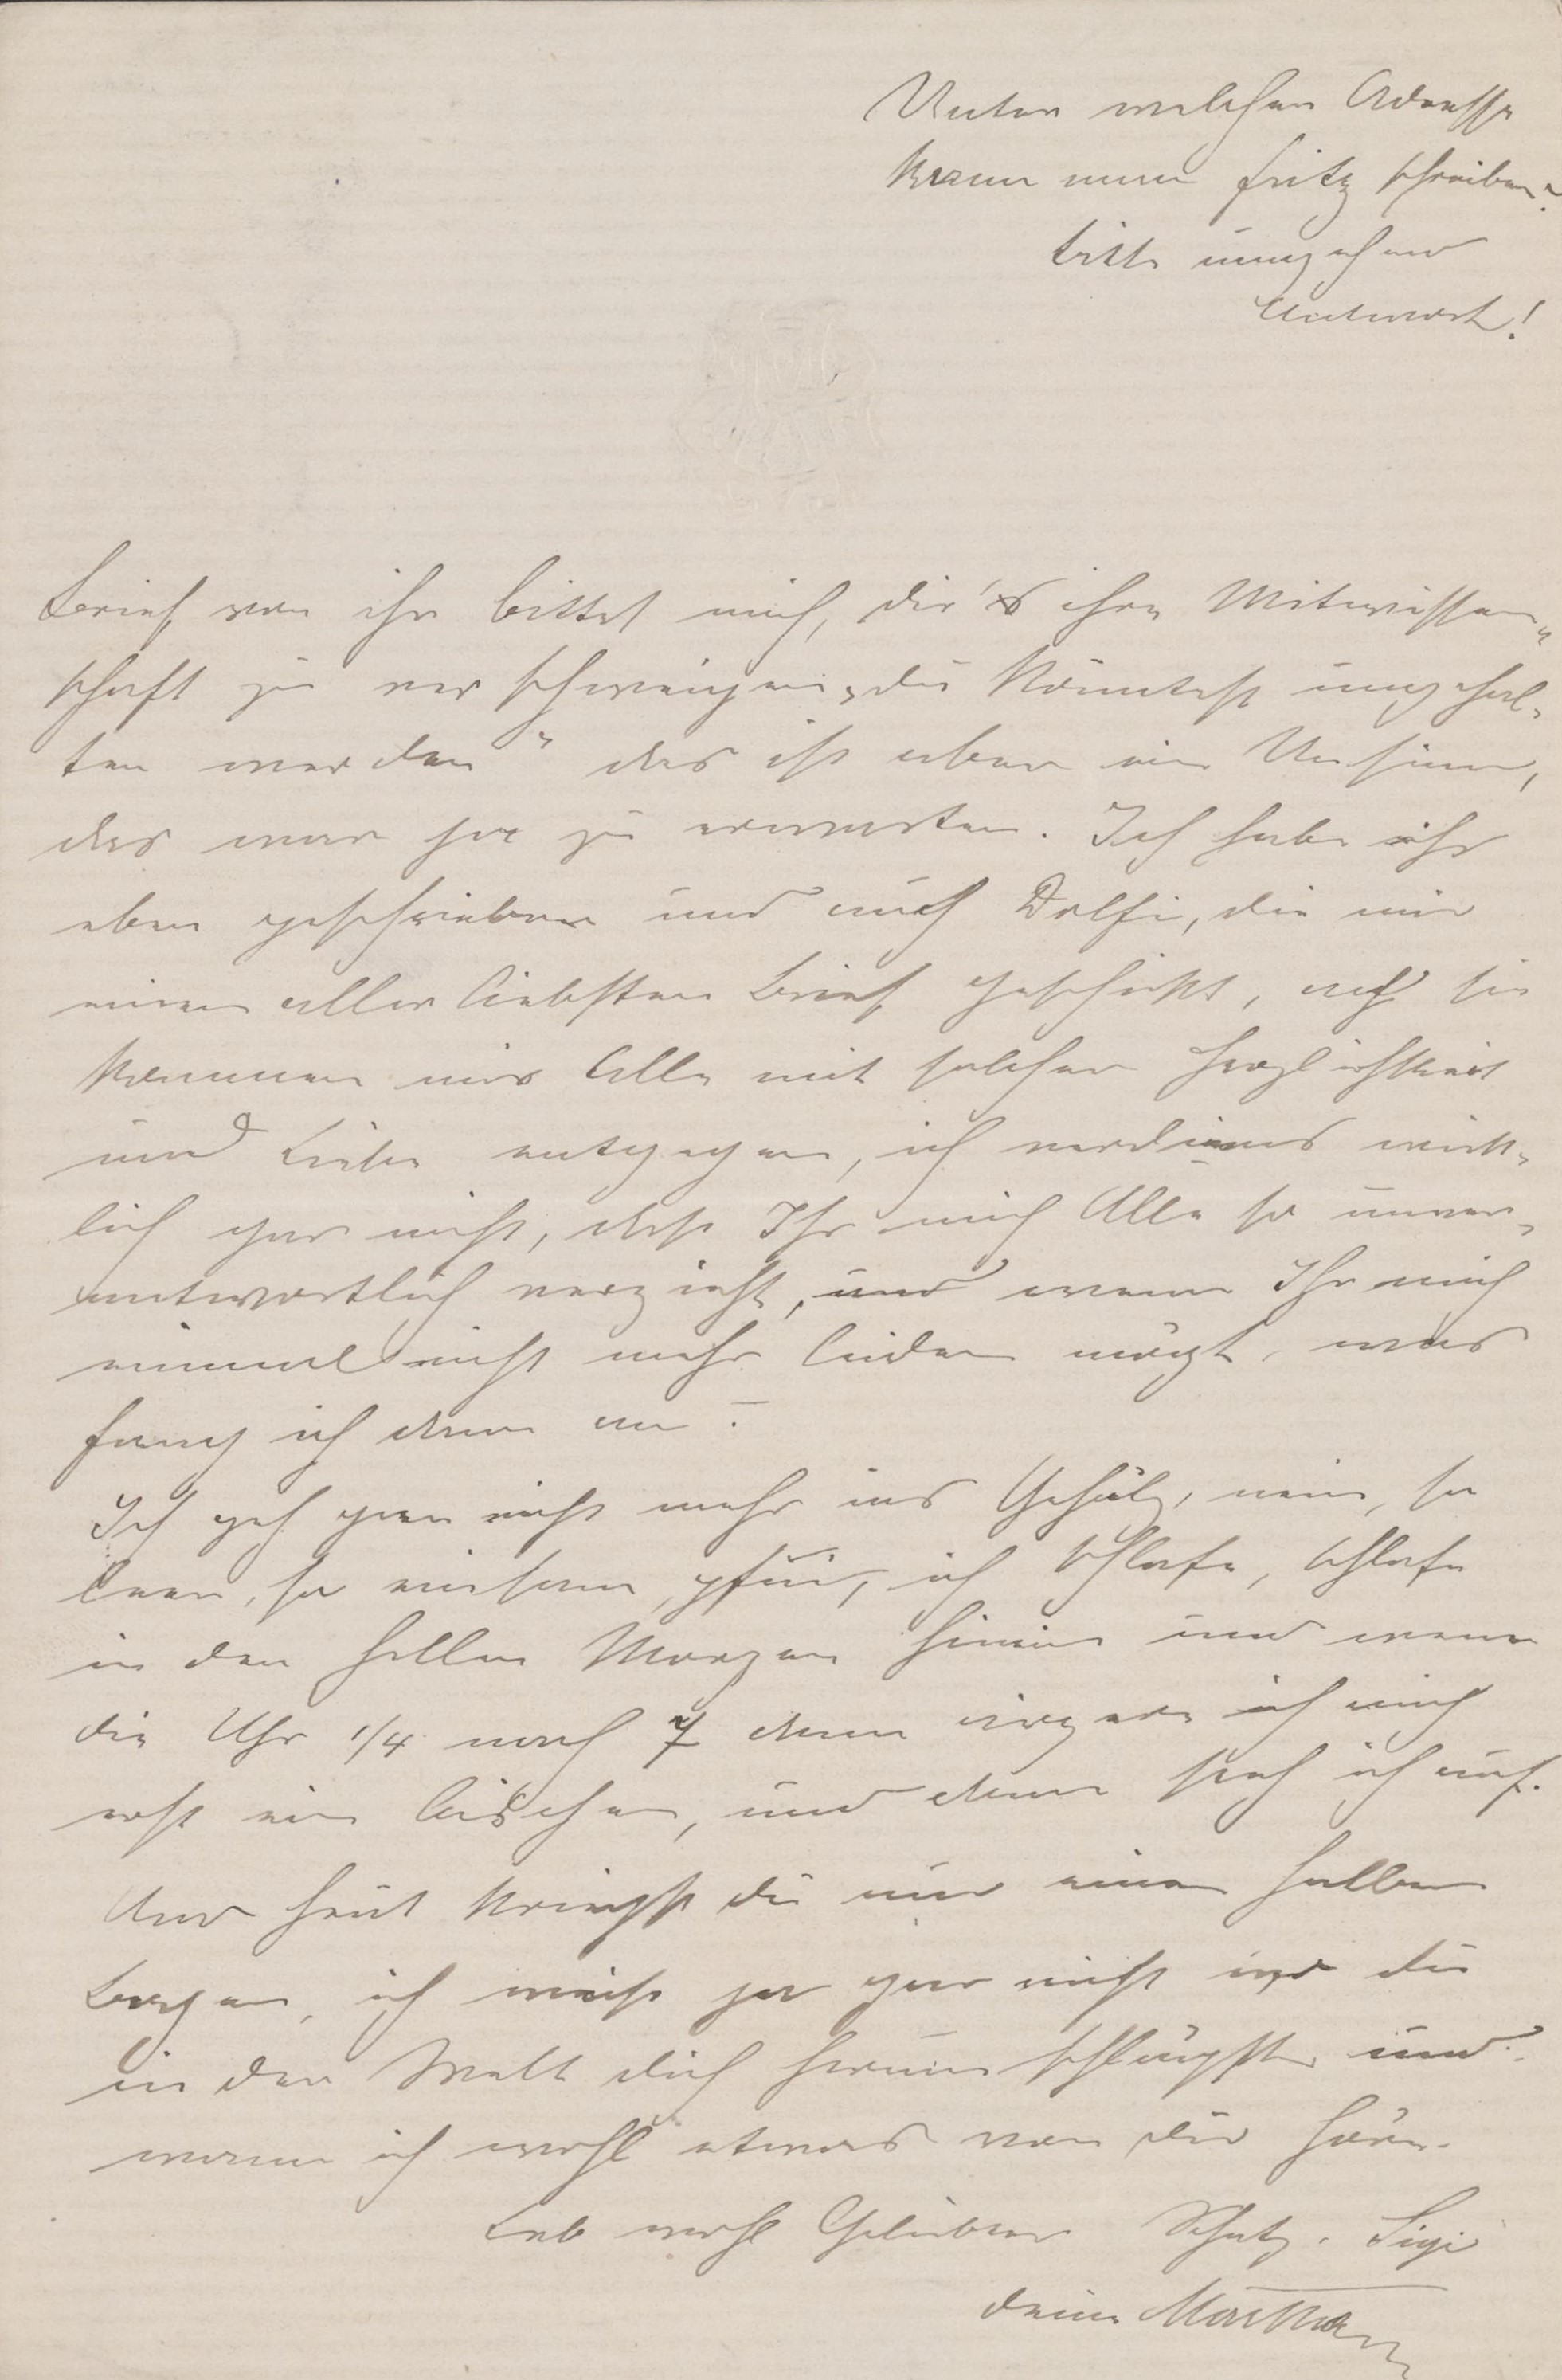 Unter welcher Adresse
kann man Fritz schreiben?
bitte umgehend
Antwort!
Brief von ihr bittet mich, dir's ihre Mitwissen-
schaft zu verschweigen „du könntest ungehal-
ten werden“ das ist aber ein Unsinn,
das war ja zu erwarten. Ich habe ihr
eben geschrieben und auch Dolfi, die mir
einen allerliebsten Brief geschickt, ach sie
kommen mir Alle mit solcher Herzlichkeit
und Liebe entgegen, ich verdiens wirk-
lich gar nicht, daß Ihr mich Alle so unver-
antwortlich verzieht, und wenn Ihr mich
einmal nicht mehr leiden mögt, was
fang ich dann an?
Ich geh gar nicht mehr ins Gehölz, nein, so
leer, so einsam, pfui, ich schlafe, schlafe
in den hellen Morgen hinein und wenn
die Uhr 1/4 nach 7 dann ärgere ich mich
erst ein bischen, und dann steh ich auf.
Und heut kriegst du nur einen halben
Bogen, ich weiß ja gar nicht wo du
in der Welt dich herum schlägst und
wann ich wohl etwas von dir höre.
Leb wohl Geliebter Schatz. Sigi
deine Martha